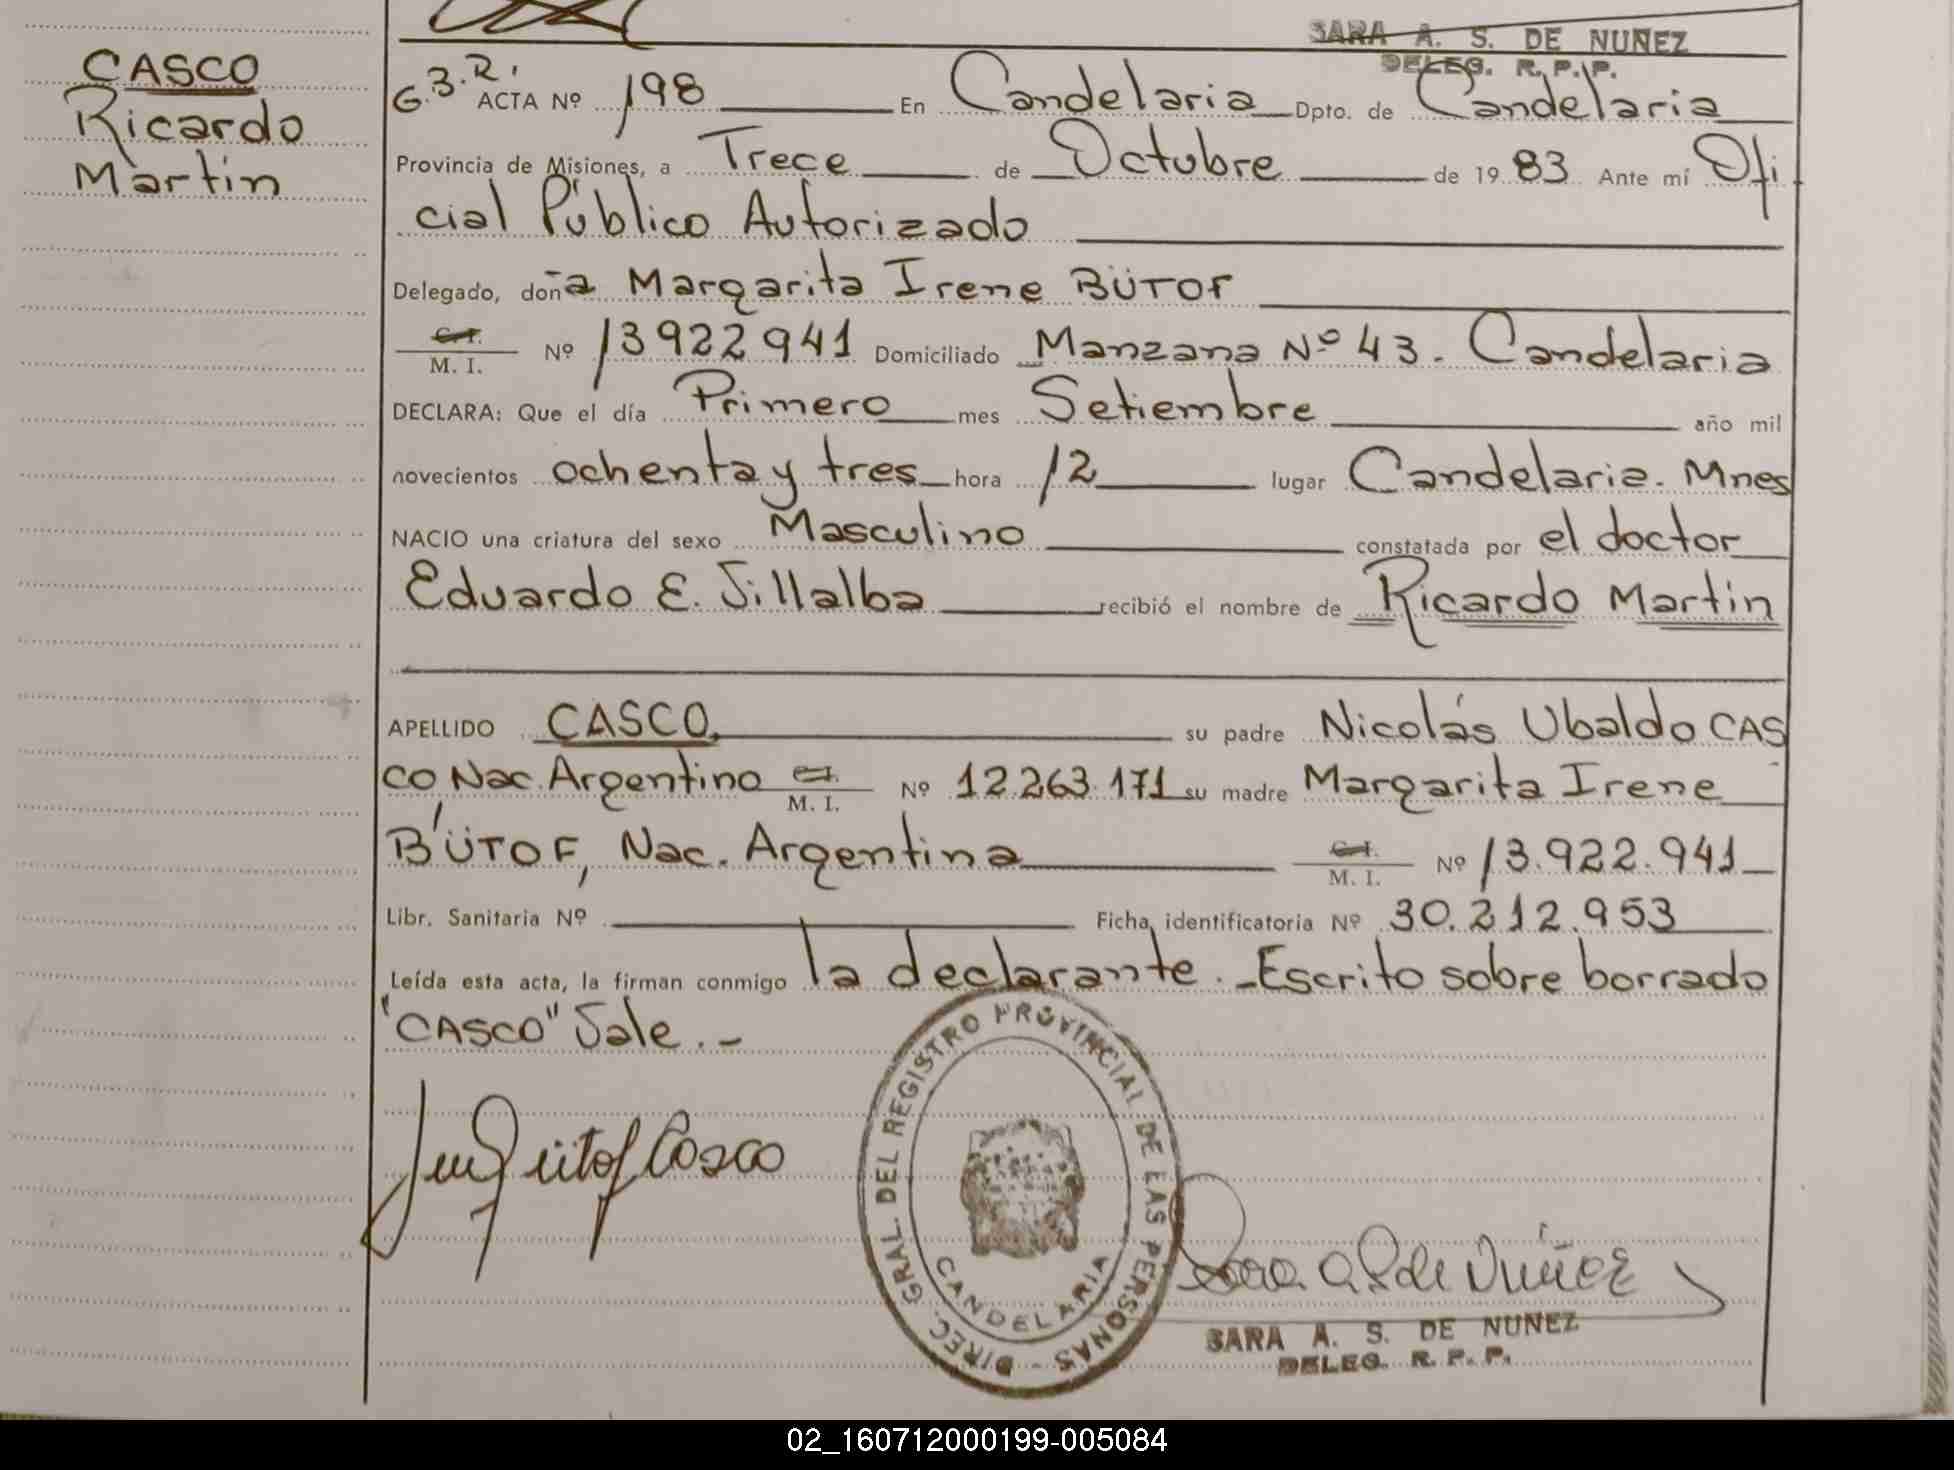 SARA A. S. DE NUÑEZ
DELEG. R. P. P.
CASCO
Ricardo
Martin
G.3.R. ACTA Nº 198 En Candelaria Dpto. de Candelaria
Provincia de Misiones, a Trece de Octubre de 1983 Ante mí Ofi
cial Público Autorizado
Delegado, doña Margarita Irene BÜTOF
C.I.
M. I. Nº 13922941 Domiciliado Manzana Nº 43. Candelaria
DECLARA: Que el día Primero mes Setiembre año mil
novecientos ochenta y tres hora 12 lugar Candelaria. Mnes
NACIO una criatura del sexo Masculino constatada por el doctor
Eduardo E. Villalba recibió el nombre de Ricardo Martin
APELLIDO CASCO. su padre Nicolás Ubaldo CAS
CO Nac. Argentino C.I. M. I. Nº 12.263.171 su madre Margarita Irene
BÜTOF, Nac. Argentina C.I. M. I. Nº 13.922.941
Libr. Sanitaria Nº Ficha identificatoria Nº 30.212.953
Leída esta acta, la firman conmigo la declarante. - Escrito sobre borrado
"CASCO" Vale. -
DIREC. GRAL. DEL REGISTRO PROVINCIAL DE LAS PERSONAS -
CANDELARIA
Sara A S de Nuñez
SARA A. S. DE NUÑEZ
DELEG. R. P. P.
02_160712000199-005084